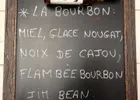 * LA BOURBON:
MIEL, GLACE NOUGAT,
NOIX DE CAJOU,
FLAMBÉE BOURBON
JIM BEAN.